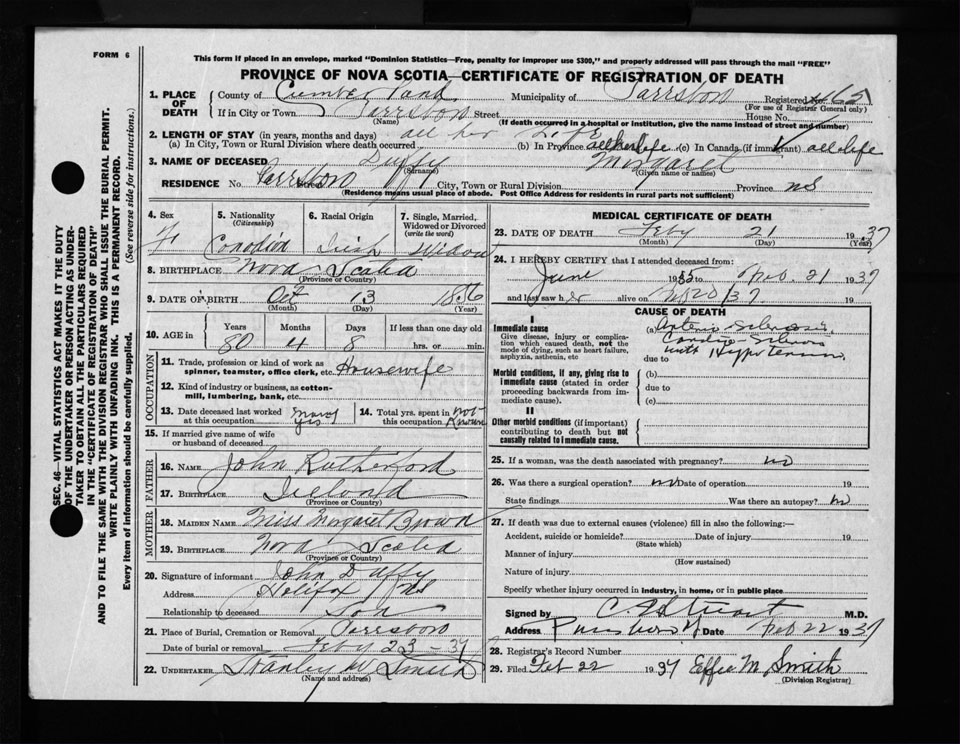 FORM 6
This form if placed in an envelope, marked "Dominion Statistics—Free, penalty for improper use $300," and properly addressed will pass through the mail "FREE"
PROVINCE OF NOVA SCOTIA—CERTIFICATE OF REGISTRATION OF DEATH
1. PLACE OF DEATH County of Cumberland Municipality of Parrsboro Registered No.
(For use of Registrar General only)
If in City or Town Parrsboro Street House No.
(Name) (If death occurred in a hospital or institution, give the name instead of street and number)
2. LENGTH OF STAY (in years, months and days) all her Life
(a) In City, Town or Rural Division where death occurred (b) In Province all her life (c) In Canada (if immigrant) all life
3. NAME OF DECEASED Duffy Margaret
(Surname) (Given name or names)
RESIDENCE No. Parrsboro Street City, Town or Rural Division Province NS
(Residence means usual place of abode. Post Office Address for residents in rural parts not sufficient)
4. Sex 5. Nationality (Citizenship) 6. Racial Origin 7. Single, Married, Widowed or Divorced (write the word)
F. Canadian Irish Widow
8. BIRTHPLACE Nova Scotia
(Province or Country)
9. DATE OF BIRTH Oct 13 1856
(Month) (Day) (Year)
10. AGE in Years Months Days If less than one day old
80 4 8 hrs. or min.
OCCUPATION
11. Trade, profession or kind of work as spinner, teamster, office clerk, etc. Housewife
12. Kind of industry or business, as cotton-mill, lumbering, bank, etc.
13. Date deceased last worked at this occupation 14. Total yrs. spent in this occupation not Known
15. If married give name of wife or husband of deceased
FATHER
16. NAME John Rutherford
17. BIRTHPLACE Ireland
(Province or Country)
MOTHER
18. MAIDEN NAME Miss Margaret Brown
19. BIRTHPLACE Nova Scotia
(Province or Country)
20. Signature of informant John Duffy
Address Halifax NS
Relationship to deceased Son
21. Place of Burial, Cremation or Removal Parrsboro
Date of burial or removal Feby 23 - 37
22. UNDERTAKER Stanley W Smith
(Name and address)
MEDICAL CERTIFICATE OF DEATH
23. DATE OF DEATH Feby 21 1937
(Month) (Day) (Year)
24. I HEREBY CERTIFY that I attended deceased from:
June 1935 to Feb. 21 1937
and last saw her alive on 20/37 19
CAUSE OF DEATH
I
Immediate cause
Give disease, injury or complication which caused death, not the mode of dying, such as heart failure, asphyxia, asthenia, etc
(a) Arterio Sclerosis,
Cardio-Sclerosis
due to with Hypertension
Morbid conditions, if any, giving rise to immediate cause (stated in order proceeding backwards from immediate cause).
(b)
due to
(c)
II
Other morbid conditions (if important) contributing to death but not causally related to immediate cause.
25. If a woman, was the death associated with pregnancy? no
26. Was there a surgical operation? no Date of operation 19
State findings Was there an autopsy? no
27. If death was due to external causes (violence) fill in also the following:—
Accident, suicide or homicide? Date of injury 19
(State which)
Manner of injury
(How sustained)
Nature of injury
Specify whether injury occurred in industry, in home, or in public place
Signed by M.D.
Address Parrsboro Date Feb 22 1937
28. Registrar's Record Number
29. Filed Feb 22 1937 Effie M. Smith
(Division Registrar)
SEC. 46—VITAL STATISTICS ACT MAKES IT THE DUTY
OF THE UNDERTAKER OR PERSON ACTING AS UNDER-
TAKER TO OBTAIN ALL THE PARTICULARS REQUIRED
IN THE "CERTIFICATE OF REGISTRATION OF DEATH"
AND TO FILE THE SAME WITH THE DIVISION REGISTRAR WHO SHALL ISSUE THE BURIAL PERMIT.
WRITE PLAINLY WITH UNFADING INK. THIS IS A PERMANENT RECORD.
Every item of information should be carefully supplied. (See reverse side for instructions.)